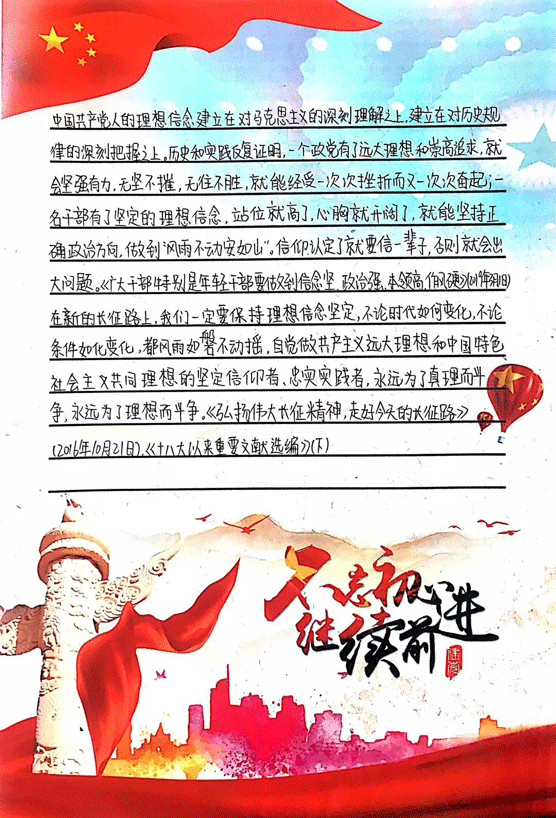 中国共产党人的理想信念建立在对马克思主义的深刻理解之上,建立在对历史规
律的深刻把握之上。历史和实践反复证明,一个政党有了远大理想和崇高追求,就
会坚强有力,无坚不摧,无往不胜,就能经受一次次挫折而又一次次奋起;一
名干部有了坚定的理想信念,站位就高了,心胸就开阔了,就能坚持正
确政治方向,做到“风雨不动安如山”。信仰认定了就要信一辈子,否则就会出
大问题。《广大干部特别是年轻干部要做到信念坚、政治强、本领高、作风硬》
在新的长征路上,我们一定要保持理想信念坚定,不论时代如何变化,不论
条件如化变化,都风雨如磐不动摇,自觉做共产主义远大理想和中国特色
社会主义共同理想的坚定信仰者、忠实实践者,永远为了真理而斗
争,永远为了理想而斗争。《弘扬伟大长征精神,走好今天的长征路》
(2016年10月21日),《十八大以来重要文献选编》(下)
不忘初心
继续前进